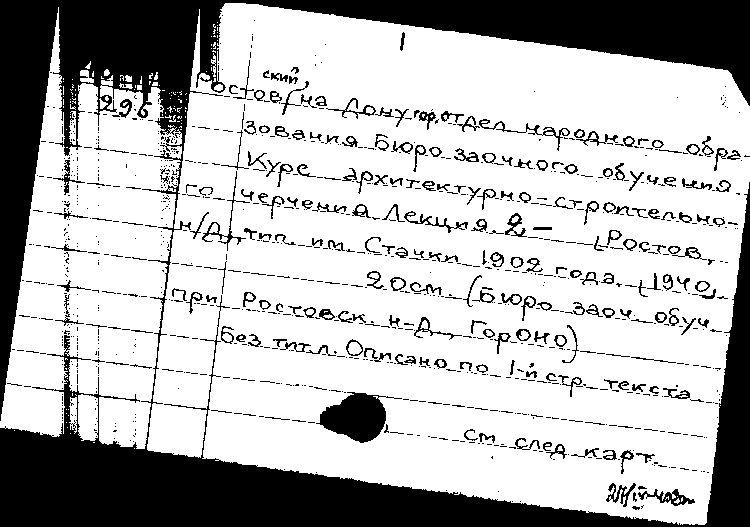 296
ский,
Ростов/на Дону гор. отдел народного обра
зования Бюро заочного обучения.
Курс архитектурно-строительно-
го черчения Лекция. 2,- [Ростов,
н/Д., тип. им. Стачки 1902 года, [1940],
20см. (Бюро заоч. обуч.
при Ростовск. н-Д., ГорОНО)
Без титл. Описано по 1-й стр. текста
см. след. карт.